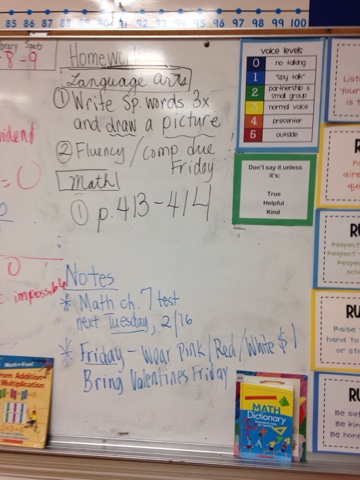 85 86 87 88 89 90 91 92 93 94 95 96 97 98 99 100
Spots
8-9
= 0
0
impossible
Homework
Language arts
① Write Sp. words 3x
and draw a picture
② Fluency/comp due
Friday
Math
① p. 413-414
Notes
* Math ch. 7 test
next Tuesday, 2/16
* Friday - Wear Pink/Red/White $1
Bring Valentines Friday
voice levels
0 no talking
1 "spy talk"
2 partnership &
small group
3 normal voice
4 presenter
5 outside
Don't say it unless
it's:
True
Helpful
Kind
RU
Respect
Respect
RU
Raise
hand to
or sta
RU
Be sa
Be kin
Be hon
Addition
Multiplication
MATH
Dictionary